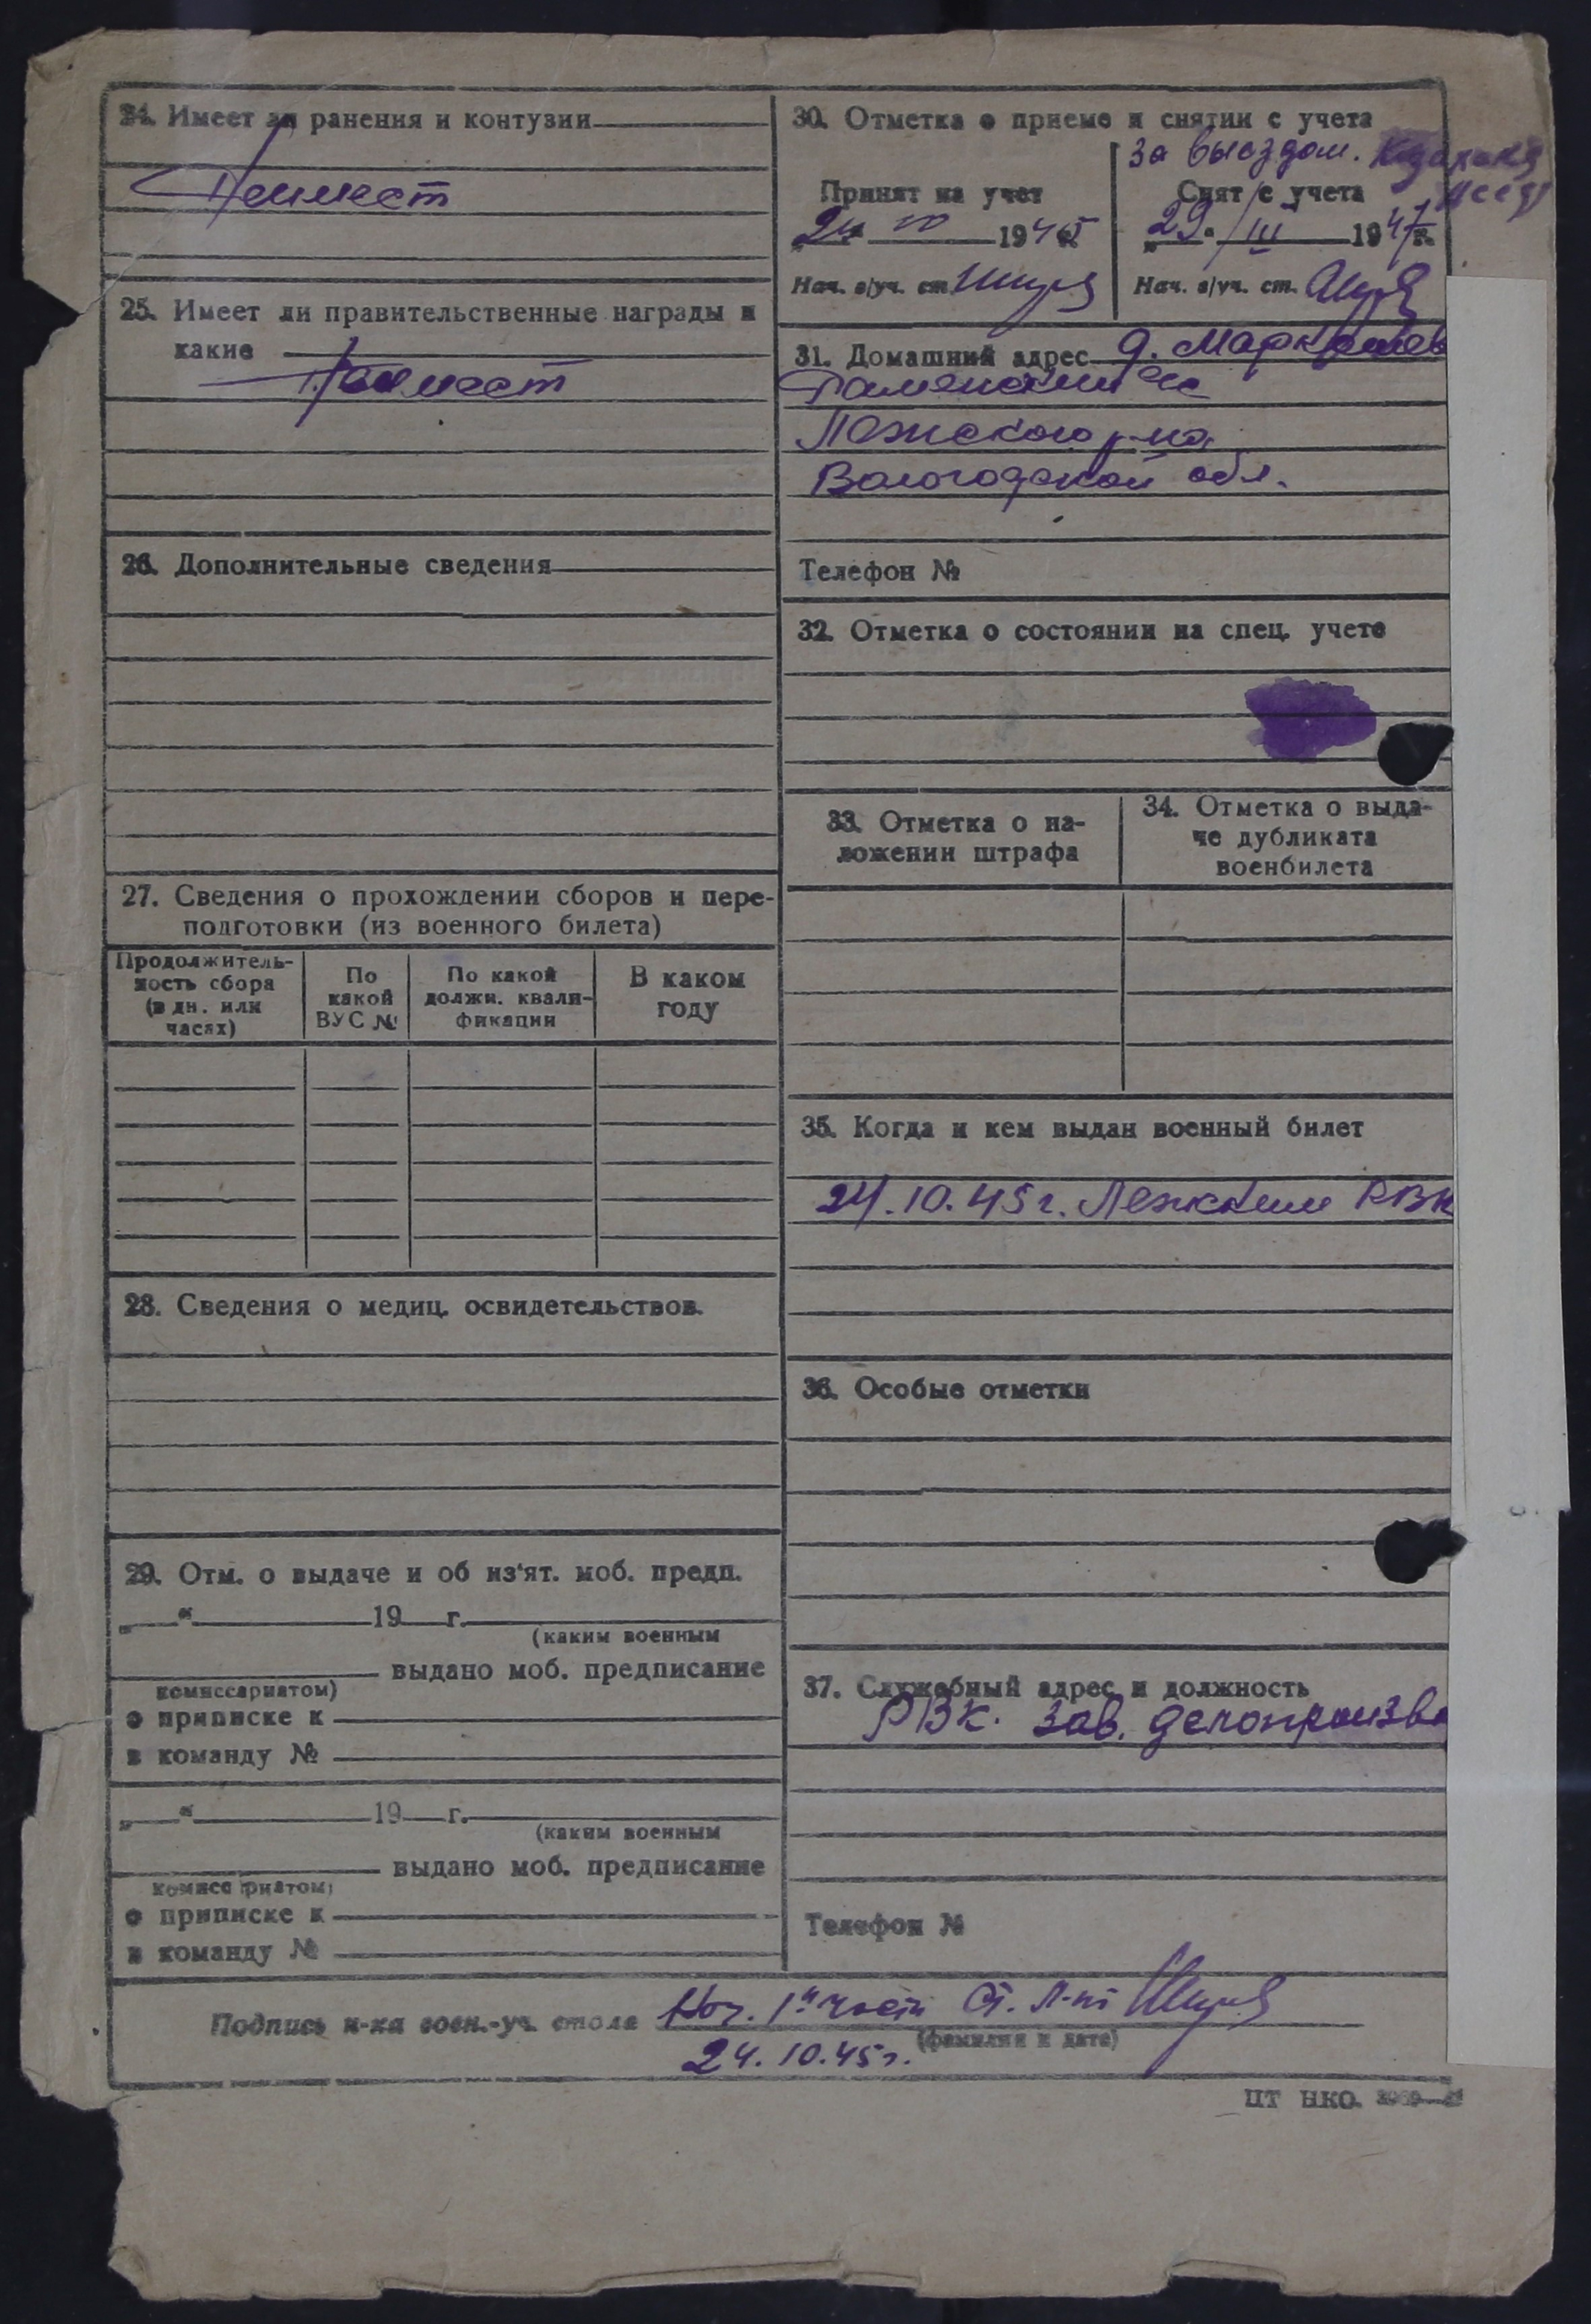 24. Имеет ли ранения и контузии
Не имеет
25. Имеет ли правительственные награды и
какие
Не имеет
26. Дополнительные сведения
27. Сведения о прохождении сборов и пере-
подготовки (из военного билета)
Продолжитель-
ность сбора
(в дн. или
часах)
По
какой
ВУС №
По какой
должн. квали-
фикации
В каком
году
28. Сведения о медиц. освидетельствов.
29. Отм. о выдаче и об из'ят. моб. предп.
„ “ 19 г.
(каким военным
выдано моб. предписание
комиссариатом)
о приписке к
в команду №
„ “ 19 г.
(каким военным
выдано моб. предписание
комиссариатом)
о приписке к
в команду №
30. Отметка о приеме и снятии с учета
Принят на учет
24 1945
Нач. в/уч. ст.
за выездом.
Снят с учета
„29“ III 1947 г.
Нач. в/уч. ст.
31. Домашний адрес д.
Раменский с/с
Лежского р-на
Вологодской обл.
Телефон №
32. Отметка о состоянии на спец. учете
33. Отметка о на-
ложении штрафа
34. Отметка о выда-
че дубликата
военбилета
35. Когда и кем выдан военный билет
24.10.45 г. Лежским РВК
36. Особые отметки
37. Служебный адрес и должность
РВК. Зав. делопроизв
Телефон №
Подпись н-ка воен.-уч. стола Нач. 1й части Ст. Л-нт
(фамилия и дата)
24.10.45 г.
ЦТ НКО.